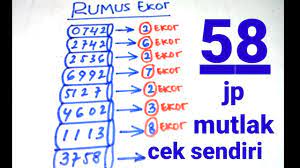 RUMUS EKOR
0742 → 2 EKOR
2742 → 6 EKOR
2536 → 2 EKOR
6992 → 7 EKOR
5127 → 2 EKOR
4602 → 3 EKOR
1113 → 8 EKOR
3758
58
jp
mutlak
cek sendiri